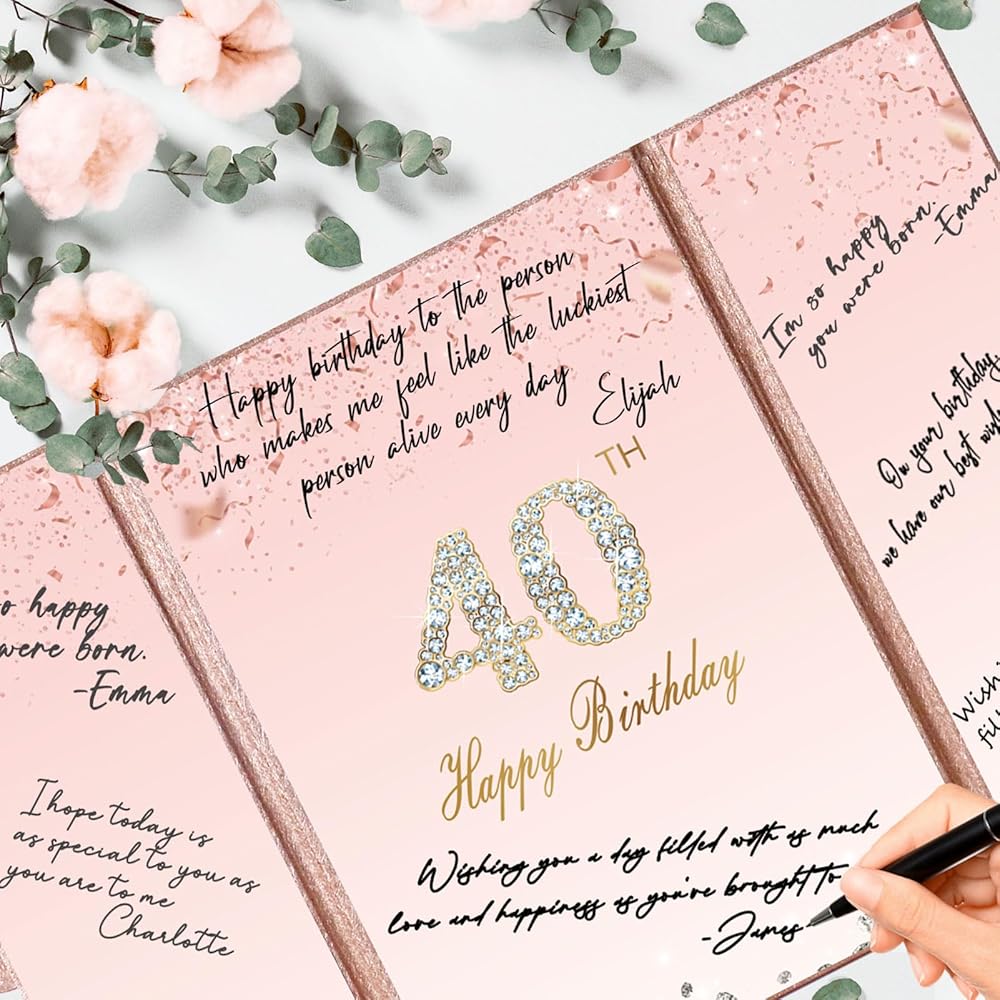 Happy birthday to the person
who makes me feel like the luckiest
person alive every day
Elijah
40TH
Happy Birthday
Wishing you a day filled with as much
love and happiness as you're brought to
-James
happy
were born.
-Emma
I hope today is
as special to you as
you are to me
Charlotte
I'm so happy
you were born.
-Emma
On your birthday,
we have our best